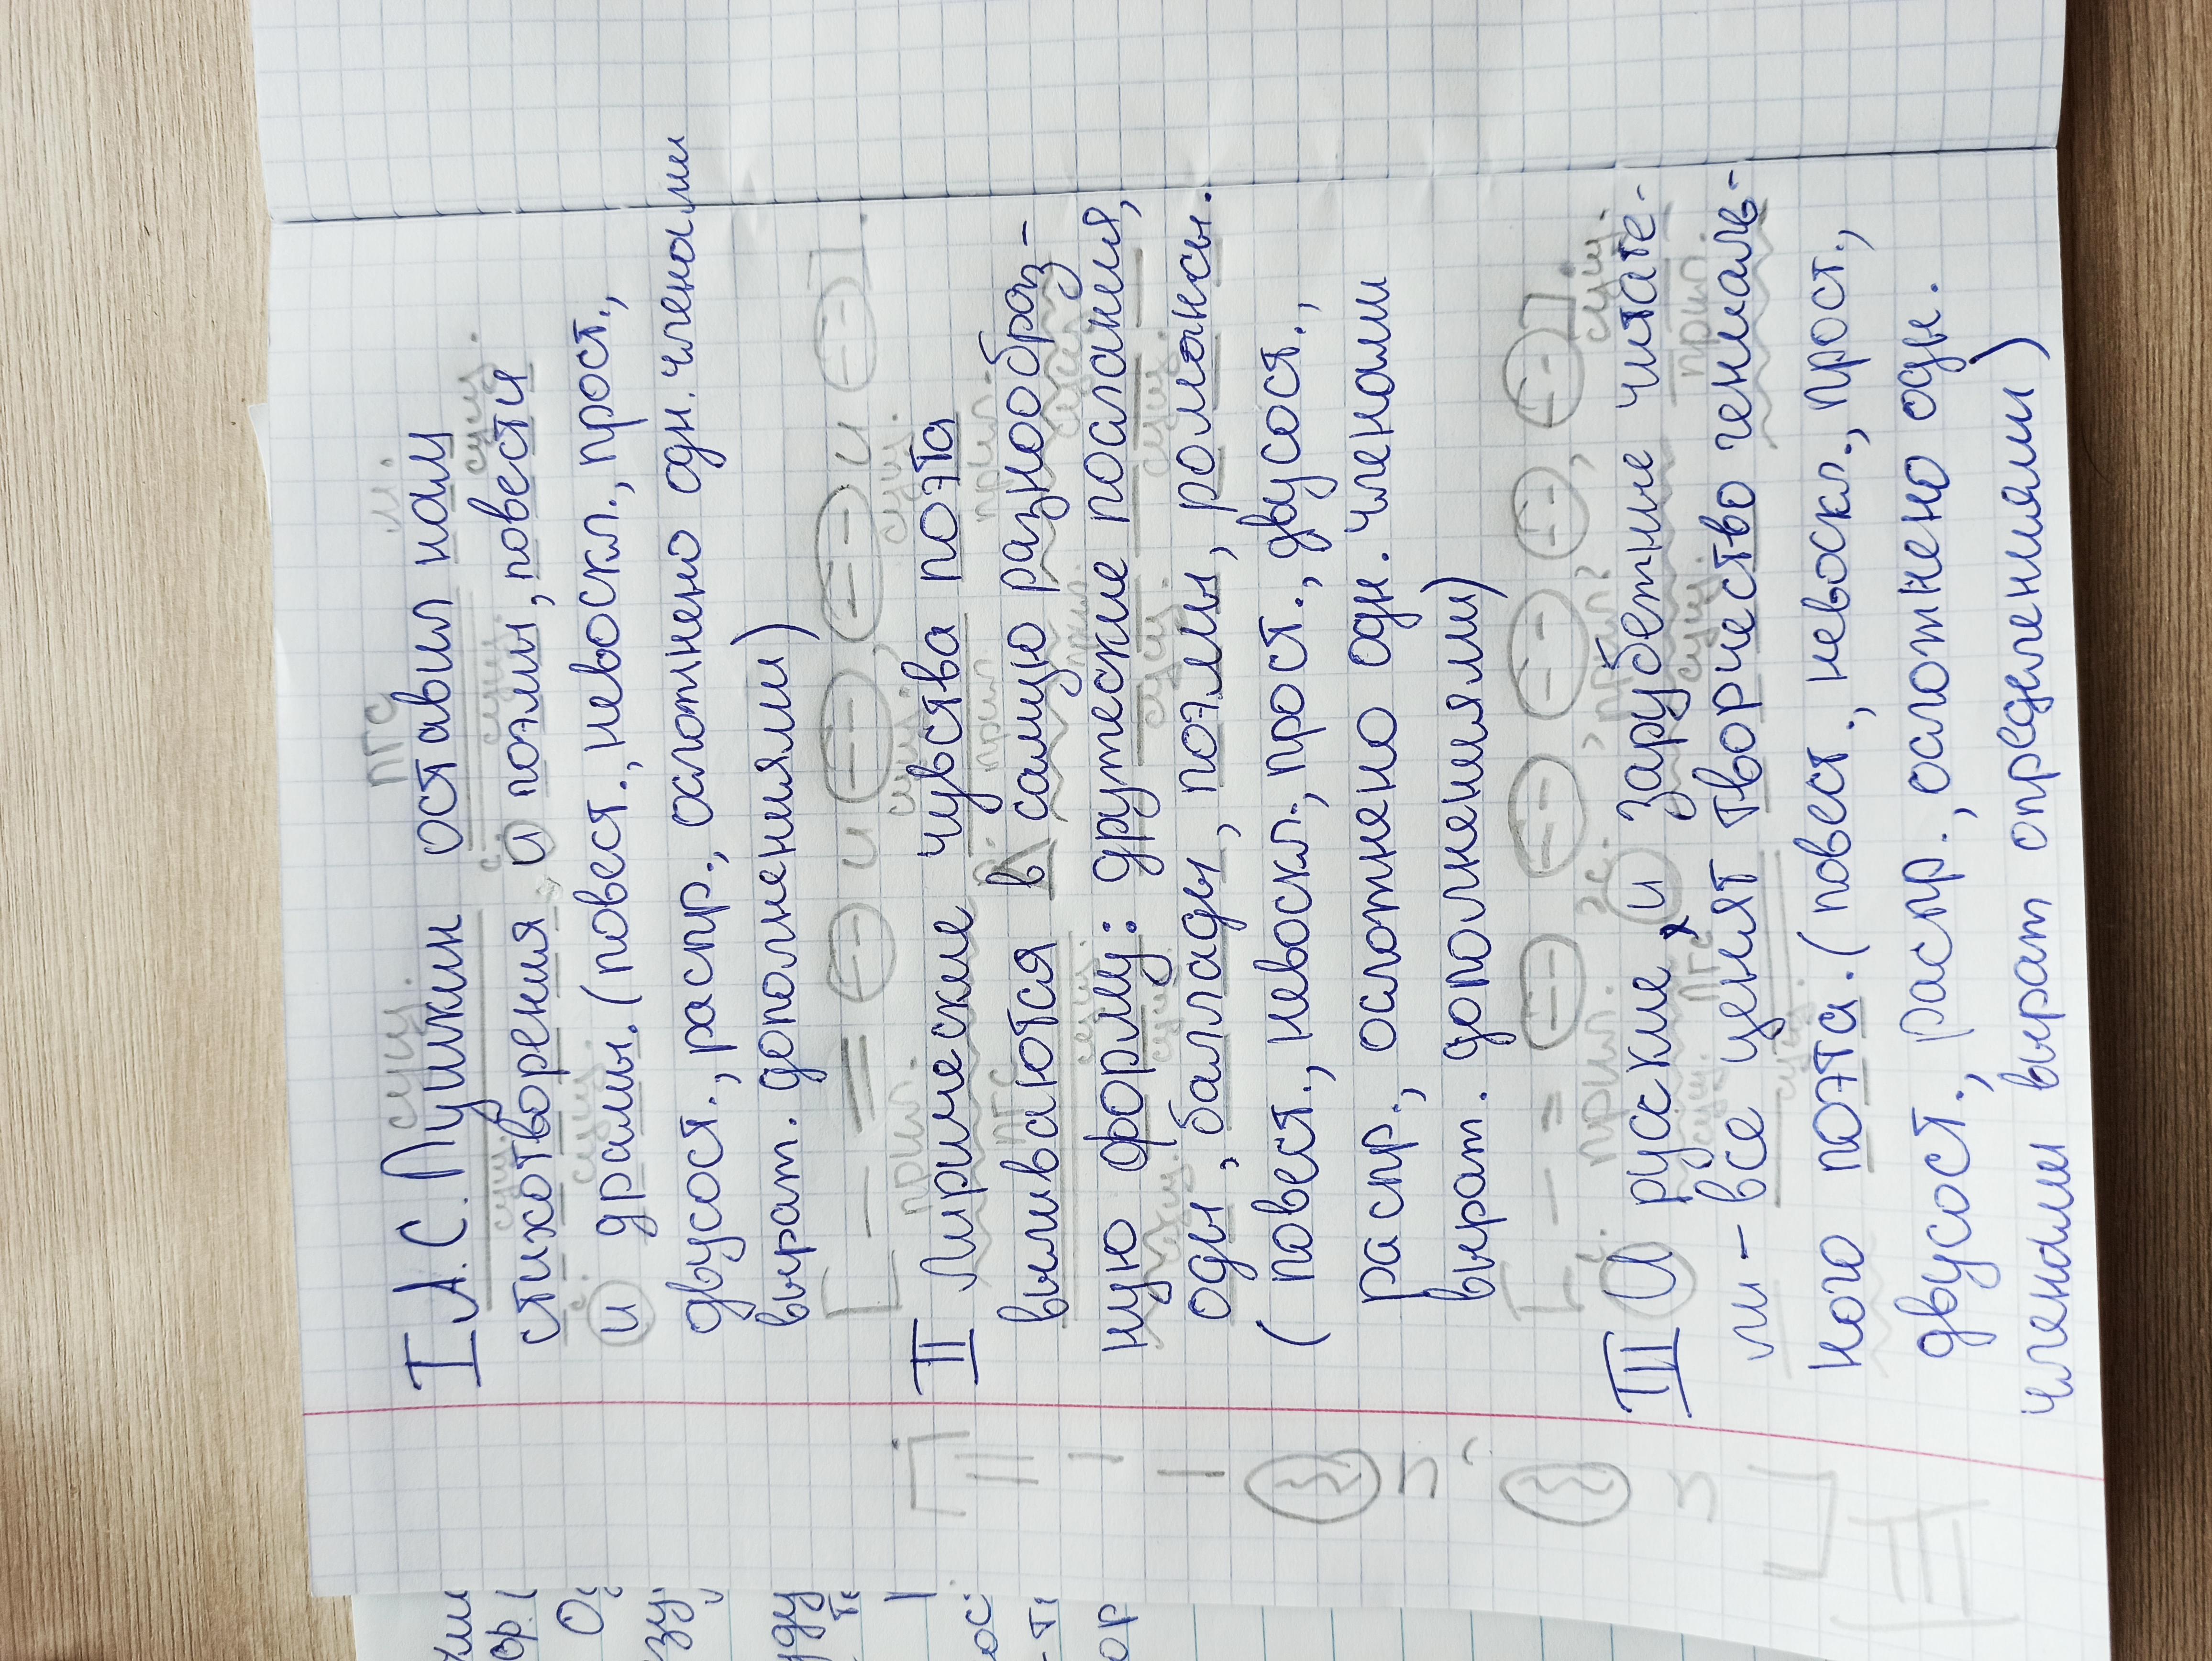 I А. С. Пушкин оставил нам
стихотворения и поэмы, повести
и драмы. (повест., невоскл., прост.,
двусост., распр., осложнено одн. членами
выраж. дополнениями)
II Лирические чувства поэта
выливаются в самую разнообраз-
ную форму: дружеские послания,
оды, баллады, поэмы, романсы.
(повест., невоскл., прост., двусост.,
распр., осложнено одн. членами
выраж. дополнениями)
III И русские, и зарубежные читате-
ли - все ценят творчество гениаль-
ного поэта. (повест., невоскл., прост.,
двусост., распр., осложнено одн.
членами выраж определениями)